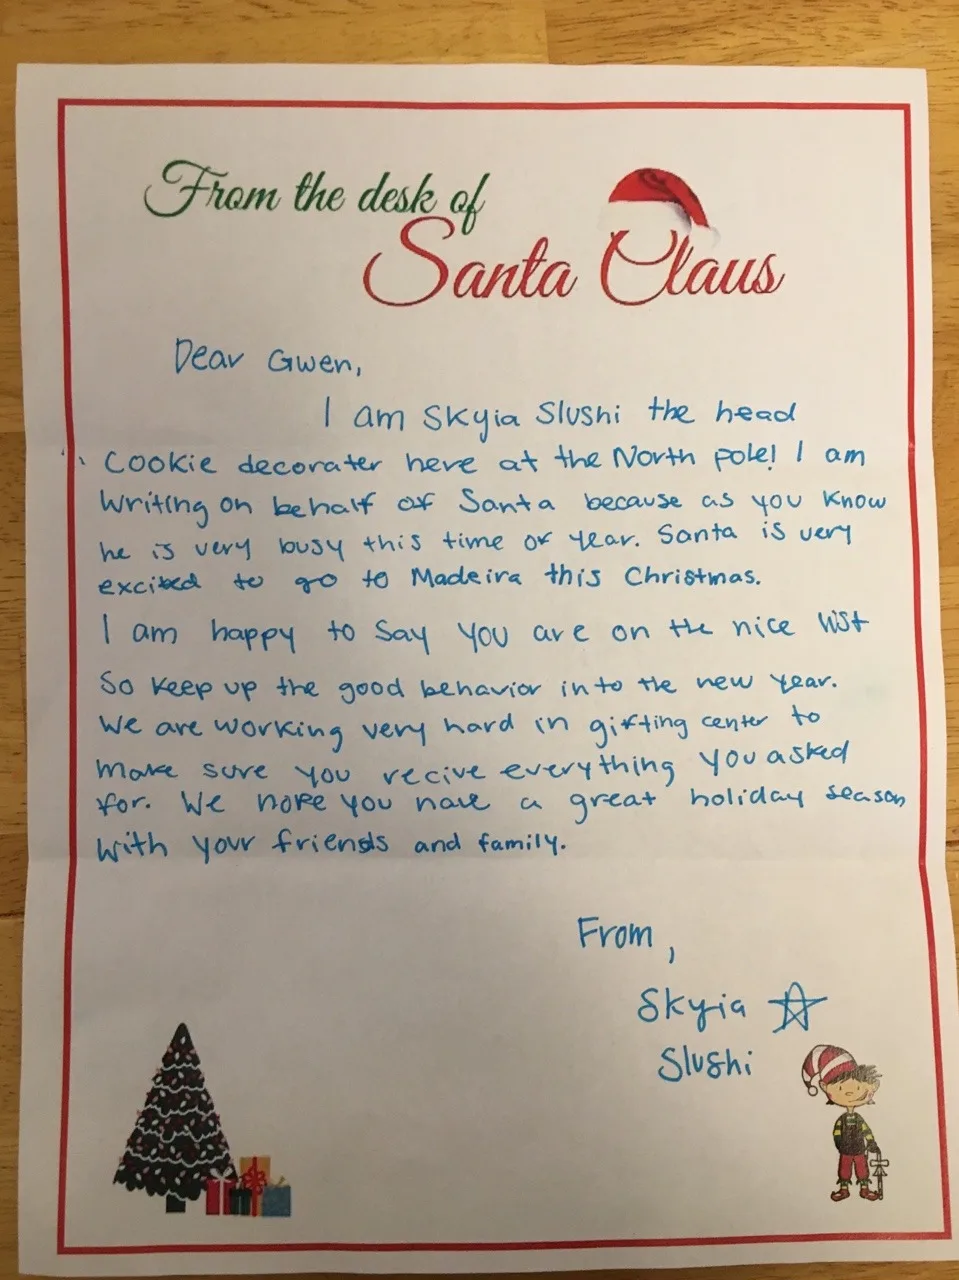 From the desk of
Santa Claus
Dear Gwen,
I am Skyia Slushi the head
cookie decorater here at the North pole! I am
writing on behalf of Santa because as you know
he is very busy this time of year. Santa is very
excited to go to Madeira this Christmas.
I am happy to say you are on the nice list
so keep up the good behavior into the new year.
We are working very hard in gifting center to
make sure you recive everything you asked
for. We hope you have a great holiday season
with your friends and family.
From,
Skyia
Slushi